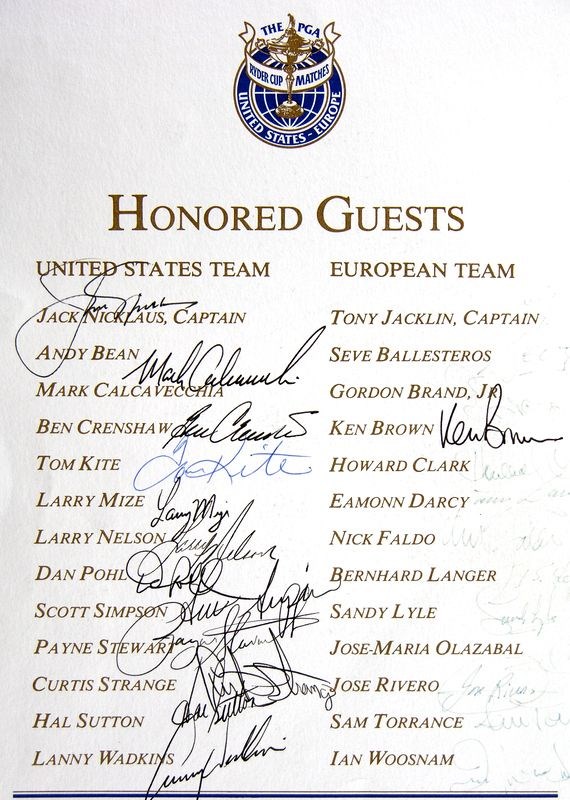 THE PGA
RYDER CUP MATCHES
UNITED STATES - EUROPE
HONORED GUESTS
UNITED STATES TEAM
JACK NICKLAUS, CAPTAIN
ANDY BEAN
Mark Calcavecchia
MARK CALCAVECCHIA
BEN CRENSHAW Ben Crenshaw
TOM KITE Tom Kite
LARRY MIZE Larry Mize
LARRY NELSON Larry Nelson
DAN POHL Dan Pohl
SCOTT SIMPSON Scott Simpson
PAYNE STEWART Payne Stewart
CURTIS STRANGE Curtis Strange
HAL SUTTON Hal Sutton
LANNY WADKINS Lanny Wadkins
EUROPEAN TEAM
TONY JACKLIN, CAPTAIN
SEVE BALLESTEROS
GORDON BRAND, JR.
KEN BROWN Ken Brown
HOWARD CLARK
EAMONN DARCY
NICK FALDO
BERNHARD LANGER
SANDY LYLE Sandy Lyle
JOSE-MARIA OLAZABAL
JOSE RIVERO Jose Rivero
SAM TORRANCE
IAN WOOSNAM